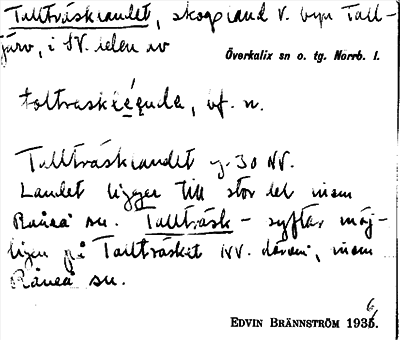 Tallträsklandet, skogsland V. byn Tall-
järv, i SV. delen av
Överkalix sn o. tg. Norrb. l.
bf. n.
Tallträsklandet g. 30 NV.
Landet ligger till stor del inom
Råneå sn. Tallträsk- syftar möj-
ligen på Tallträsket NV. därom, inom
Råneå sn.
EDVIN BRÄNNSTRÖM 1936.